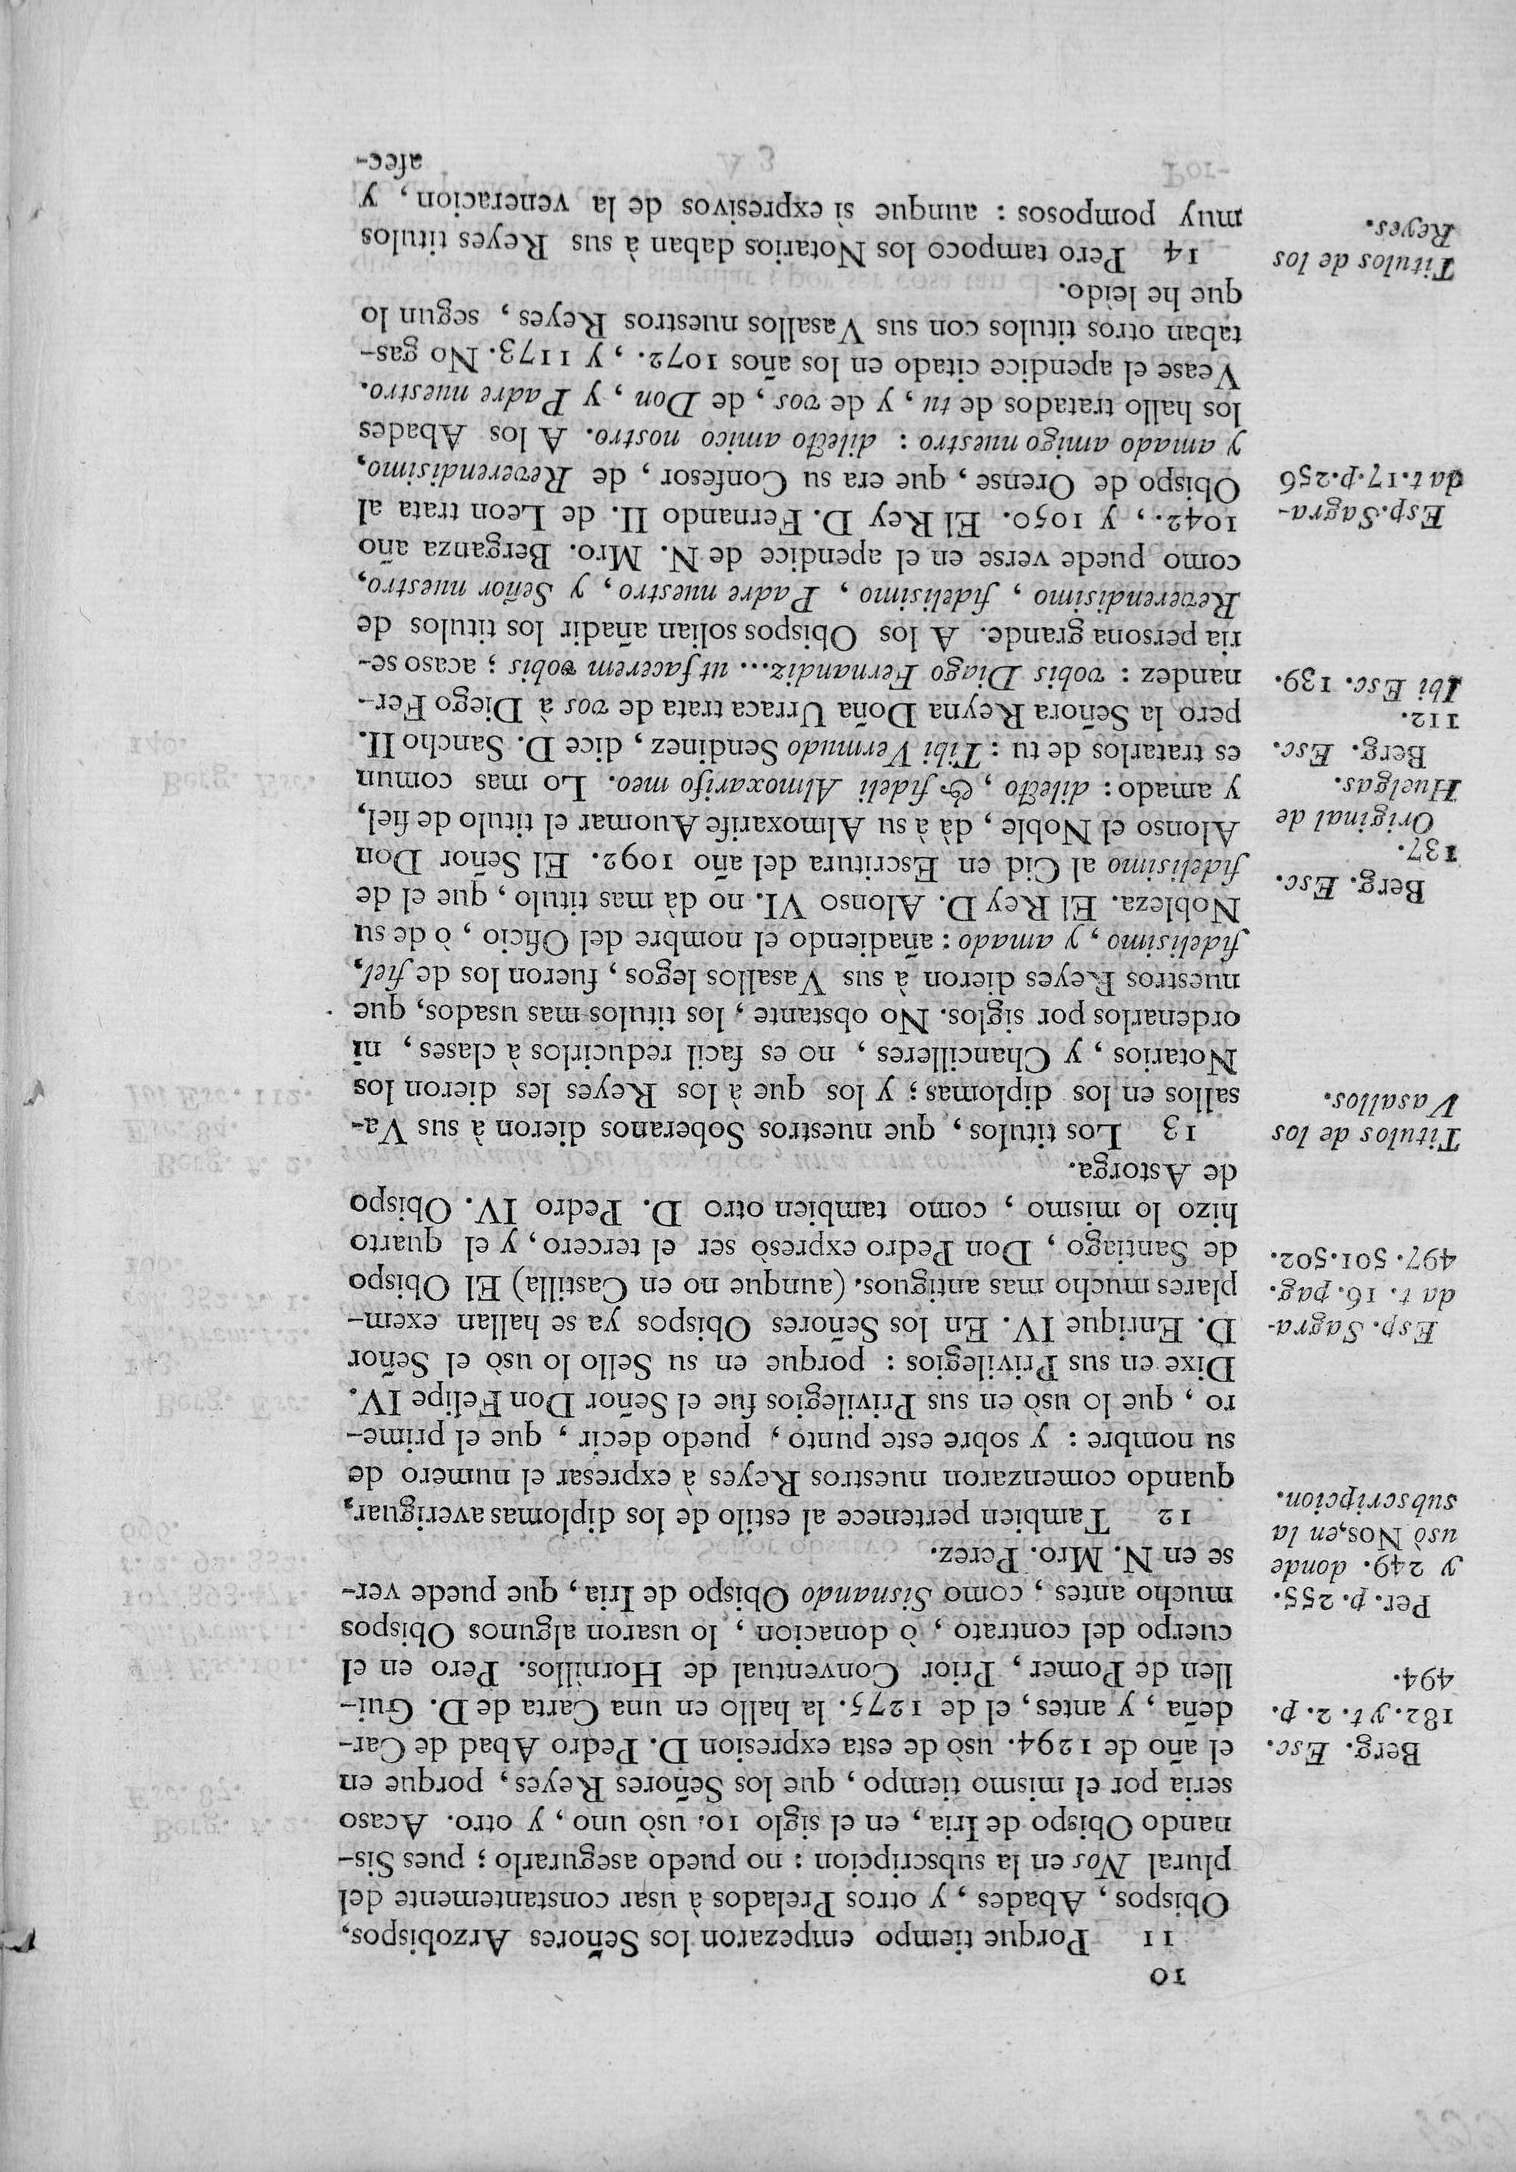 10
11 Porque tiempo empezaron los Señores Arzobispos,
Obispos, Abades, y otros Prelados à usar constantemente del
plural Nos en la subscripcion : no puedo asegurarlo ; pues Sis-
nando Obispo de Iria, en el siglo 10. usò uno, y otro. Acaso
seria por el mismo tiempo, que los Señores Reyes, porque en
el año de 1294. usò de esta expresion D. Pedro Abad de Car-
deña, y antes, el de 1275. la hallo en una Carta de D. Gui-
llen de Pomer, Prior Conventual de Hornillos. Pero en el
cuerpo del contrato, ò donacion, lo usaron algunos Obispos
mucho antes, como Sisnando Obispo de Iria, que puede ver-
se en N. Mro. Perez.
12 Tambien pertenece al estilo de los diplomas averiguar,
quando comenzaron nuestros Reyes à expresar el numero de
su nombre : y sobre este punto, puedo decir, que el prime-
ro, que lo usò en sus Privilegios fue el Señor Don Felipe IV.
Dixe en sus Privilegios : porque en su Sello lo usò el Señor
D. Enrique IV. En los Señores Obispos ya se hallan exem-
plares mucho mas antiguos. (aunque no en Castilla) El Obispo
de Santiago, Don Pedro expresò ser el tercero, y el quarto
hizo lo mismo, como tambien otro D. Pedro IV. Obispo
de Astorga.
13 Los titulos, que nuestros Soberanos dieron à sus Va-
sallos en los diplomas ; y los que à los Reyes les dieron los
Notarios, y Chancilleres, no es facil reducirlos à clases, ni
ordenarlos por siglos. No obstante, los titulos mas usados, que
nuestros Reyes dieron à sus Vasallos legos, fueron los de fiel,
fidelisimo, y amado : añadiendo el nombre del Oficio, ò de su
Nobleza. El Rey D. Alonso VI. no dà mas titulo, que el de
fidelisimo al Cid en Escritura del año 1092. El Señor Don
Alonso el Noble, dà à su Almoxarife Auomar el titulo de fiel,
y amado : dilecto, & fideli Almoxarifo meo. Lo mas comun
es tratarlos de tu : Tibi Vermudo Sendinez, dice D. Sancho II.
pero la Señora Reyna Doña Urraca trata de vos à Diego Fer-
nandez : vobis Diago Fernandiz... ut facerem vobis ; acaso se-
ria persona grande. A los Obispos solian añadir los titulos de
Reverendisimo, fidelisimo, Padre nuestro, y Señor nuestro,
como puede verse en el apendice de N. Mro. Berganza año
1042., y 1050. El Rey D. Fernando II. de Leon trata al
Obispo de Orense, que era su Confesor, de Reverendisimo,
y amado amigo nuestro : dilecto amico nostro. A los Abades
los hallo tratados de tu, y de vos, de Don, y Padre nuestro.
Vease el apendice citado en los años 1072., y 1173. No gas-
taban otros titulos con sus Vasallos nuestros Reyes, segun lo
que he leìdo.
14 Pero tampoco los Notarios daban à sus Reyes titulos
muy pomposos : aunque sì expresivos de la veneracion, y
afec-
Berg. Esc.
182. y t. 2. p.
494.
Per. p. 255.
y 249. donde
usò Nos, en la
subscripcion.
Esp. Sagra-
da t. 16. pag.
497. 501. 502.
Titulos de los
Vasallos.
Berg. Esc.
137.
Original de
Huelgas.
Berg. Esc.
112.
Ibi Esc. 139.
Esp. Sagra-
da t. 17. p. 256
Titulos de los
Reyes.